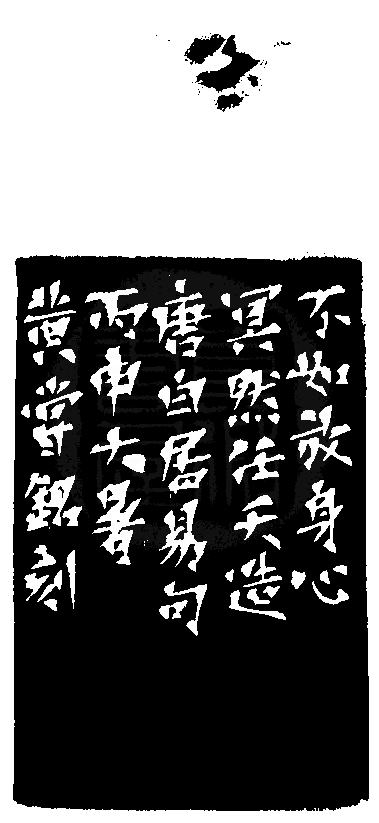 不如放身心
冥然任天造
唐白居易句
丙申大暑
黄尝铭刻